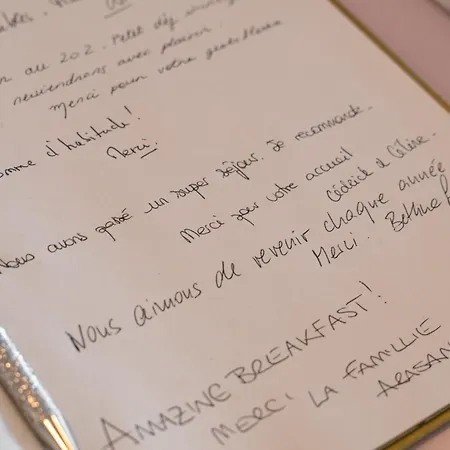 au 202. Petit déj
reviendrons avec plaisir.
Merci pour votre gentillesse
comme d'habitude!
Merci.
Nous avons passé un super séjour. Je recommande.
Merci pour votre accueil
Cédrick & Céline.
Nous aimons de revenir chaque année
Merci. Bettina
AMAZING BREAKFAST!
MERCI LA FAMILLE